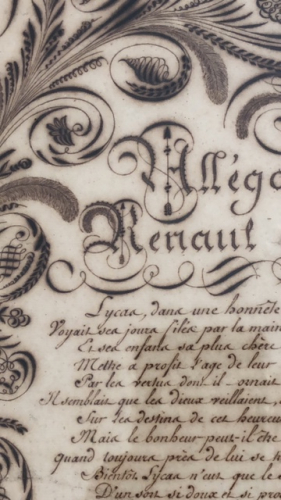 Allégo
Renaut
Lycas, dans une honnête
Voyait ses jours filés par la main
Et ses enfans sa plus chère
Mettre à profit l'age de leur
Par les vertus dont il ornait
Il semblait que les dieux veillaient,
Sur les destins de cet heureux
Mais le bonheur peut-il être
quand toujours près de lui se t
Bientôt Lycas n'eut que le s
D'un sort si doux et si pro